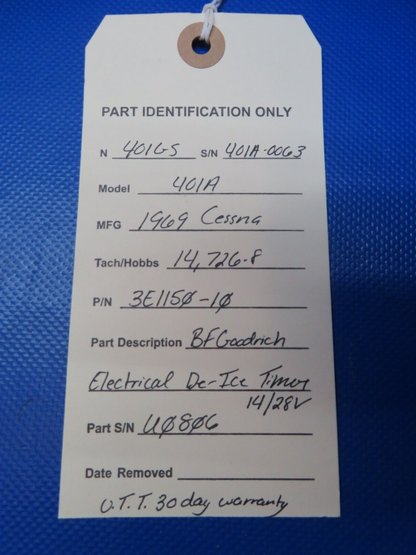 PART IDENTIFICATION ONLY
N 401GS S/N 401A-0063
Model 401A
MFG 1969 Cessna
Tach/Hobbs 14,726.8
P/N 3E115Ø-1Ø
Part Description BFGoodrich
Electrical De-Ice Timer
14/28V
Part S/N UØ8Ø6
Date Removed
U.T.T. 30 day warranty